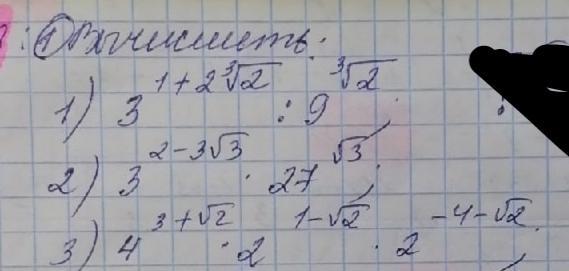 1) Вычислить:
1) 3^{1+2∛2} : 9^{∛2};
2) 3^{2-3√3} · 27^{√3};
3) 4^{3+√2} · 2^{1-√2} · 2^{-4-√2};